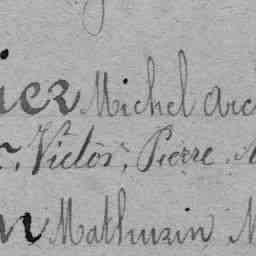 ier Michel arc
r, Victor, Pierre,
n Mathurin